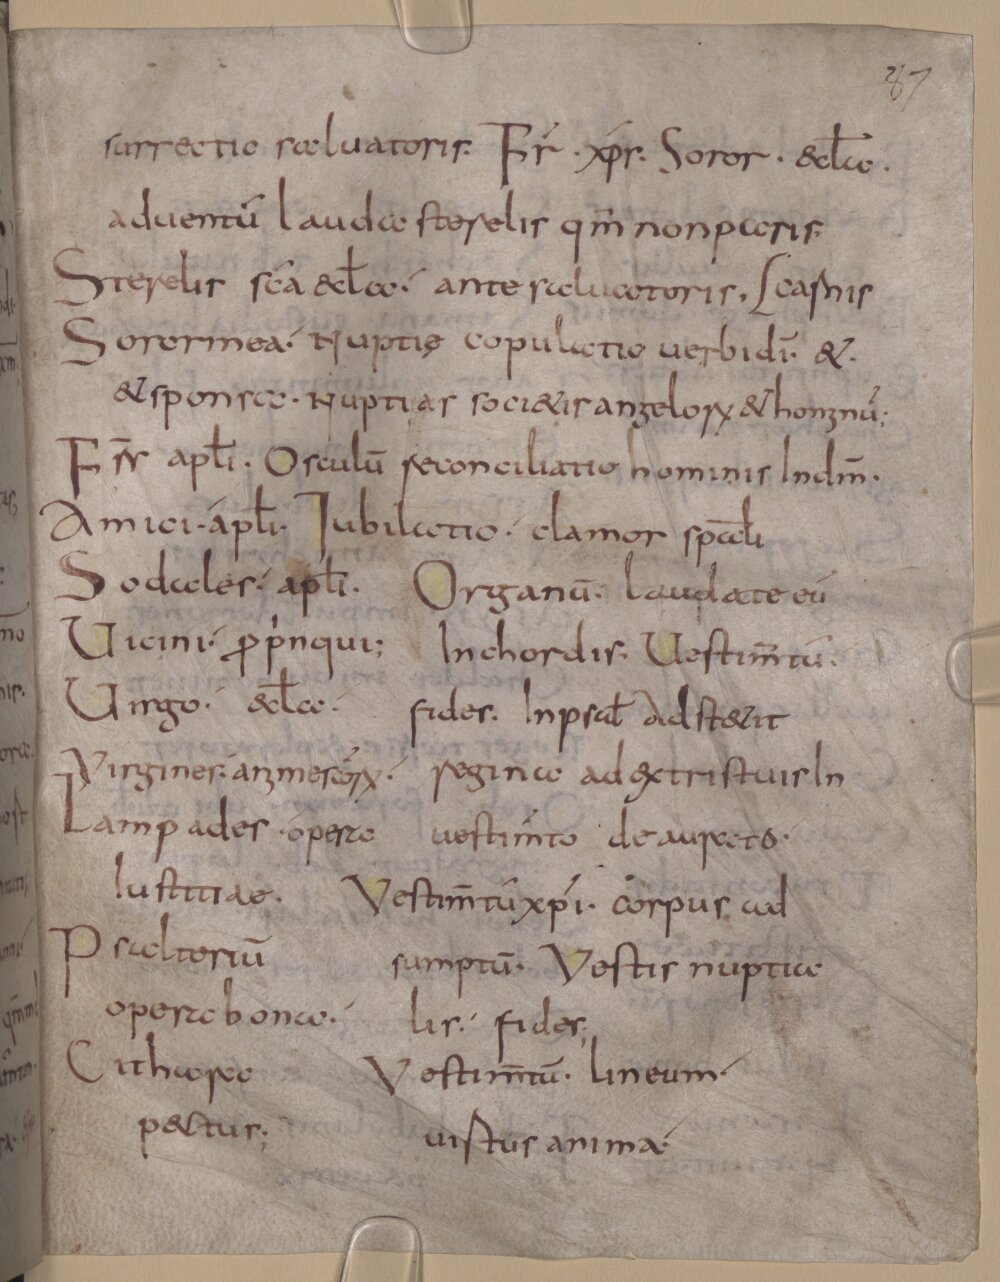 87
surrectio saluatoris. Fr̄ . xp̄s. Soror . &cl̄a .
aduentū laudasterelis qm̄ nonparis;
Sterelis sc̄a &cl̄a. ante saluatoris,
Sorormea. Nuptię copulatio uerbidī. &.
&sponsa. Nuptias soci&is angeloꝝ &hominū;
Fr̄ apl̄i. Osculū reconciliatio hominis Indm̄.
Amici. apl̄i. Iubilatio. clamor
Sodales. apl̄i. Organū. laudate eū
Uicini. ꝓpinqui; Inchordis. Uestim̄tū.
Uirgo. &cl̄a. fides. Inpsal̄ Adstetit
Virgines. regina adextristuisIn
Lampades. opera uestim̄to deaurato.
Iustitiae. Vestim̄tū xp̄i. corpus ad
Psalteriū sumptū. Vestis nuptia
opera bona. lis. fides;
Cithara Vestim̄tū. lineum.
pectus; uirtus animae